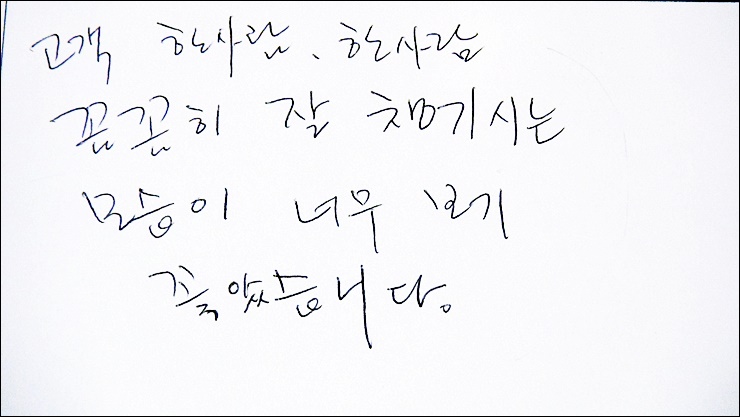 고객 한사람, 한사람
꼼꼼히 잘 챙기시는
모습이 너무 보기
좋았습니다.